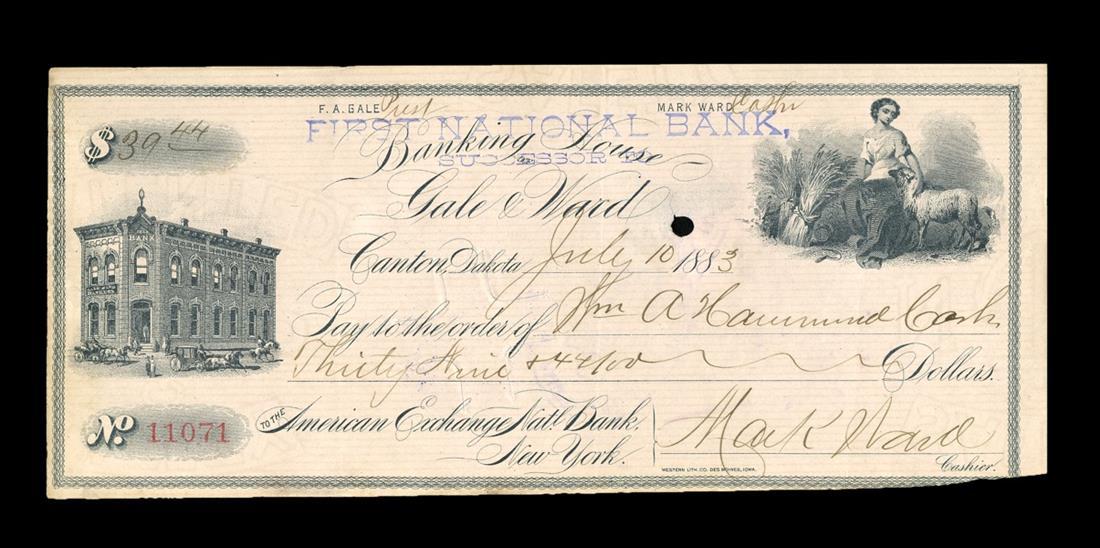 F. A. GALE Prest MARK WARD Cashr
FIRST NATIONAL BANK,
Banking House
SUCCESSOR TO
$ 39 44
Gale & Ward
BANK
Canton, Dakota July 10 1883
Pay to the order of Wm A Hammond Cash
Thirty Nine & 44/100 Dollars.
No. 11071
TO THE American Exchange Nat'l Bank,
New York.
Mark Ward
Cashier.
WESTERN LITH. CO. DES MOINES, IOWA.